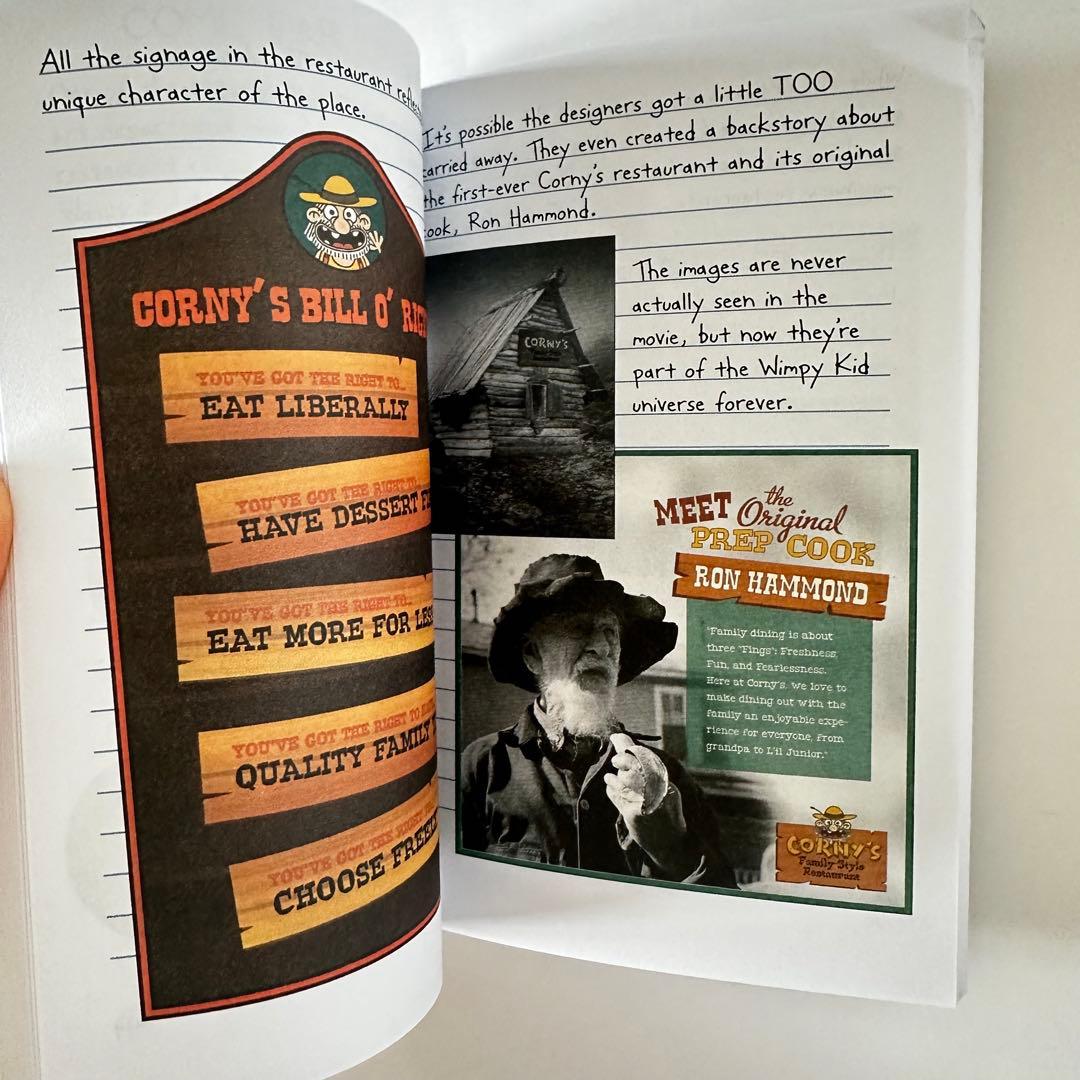 All the signage in the restaurant
unique character of the place.
CORNY'S BILL O'
YOU'VE GOT THE RIGHT TO...
EAT LIBERALLY
YOU'VE GOT THE RIGHT TO
HAVE DESSERT
YOU'VE GOT THE RIGHT TO...
EAT MORE FOR
YOU'VE GOT THE RIGHT TO
QUALITY FAMILY
YOU'VE GOT THE RIGHT
CHOOSE
It's possible the designers got a little TOO
carried away. They even created a backstory about
the first-ever Corny's restaurant and its original
cook, Ron Hammond.
CORNY'S
The images are never
actually seen in the
movie, but now they're
part of the Wimpy Kid
universe forever.
MEET the Original
PREP COOK
RON HAMMOND
"Family dining is about
three "Fings": Freshness,
Fun, and Fearlessness.
Here at Corny's, we love to
make dining out with the
family an enjoyable expe-
rience for everyone, from
grandpa to L'il Junior."
CORNY'S
Family Style
Restaurant